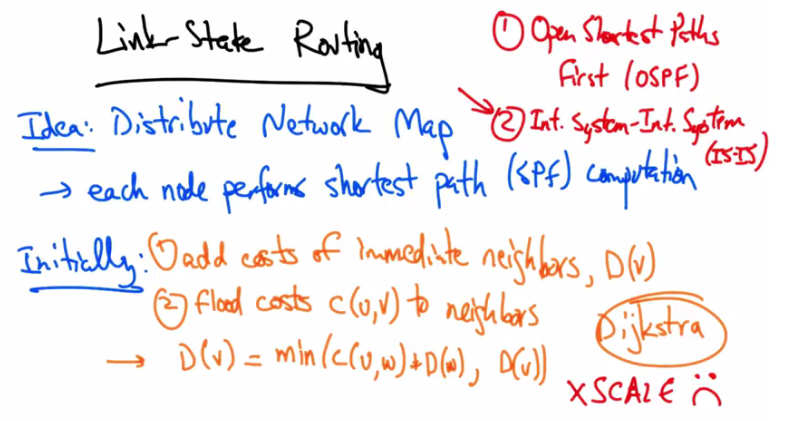 Link-State Routing
① Open Shortest Paths
First (OSPF)
Idea: Distribute Network Map
② Int. System-Int. System
(IS-IS)
→ each node performs shortest path (SPF) computation
Initially: ① add costs of immediate neighbors, D(v)
② flood costs c(u,v) to neighbors
→ D(v) = min(c(u,w)+D(w), D(v))
Dijkstra
X SCALE ☹